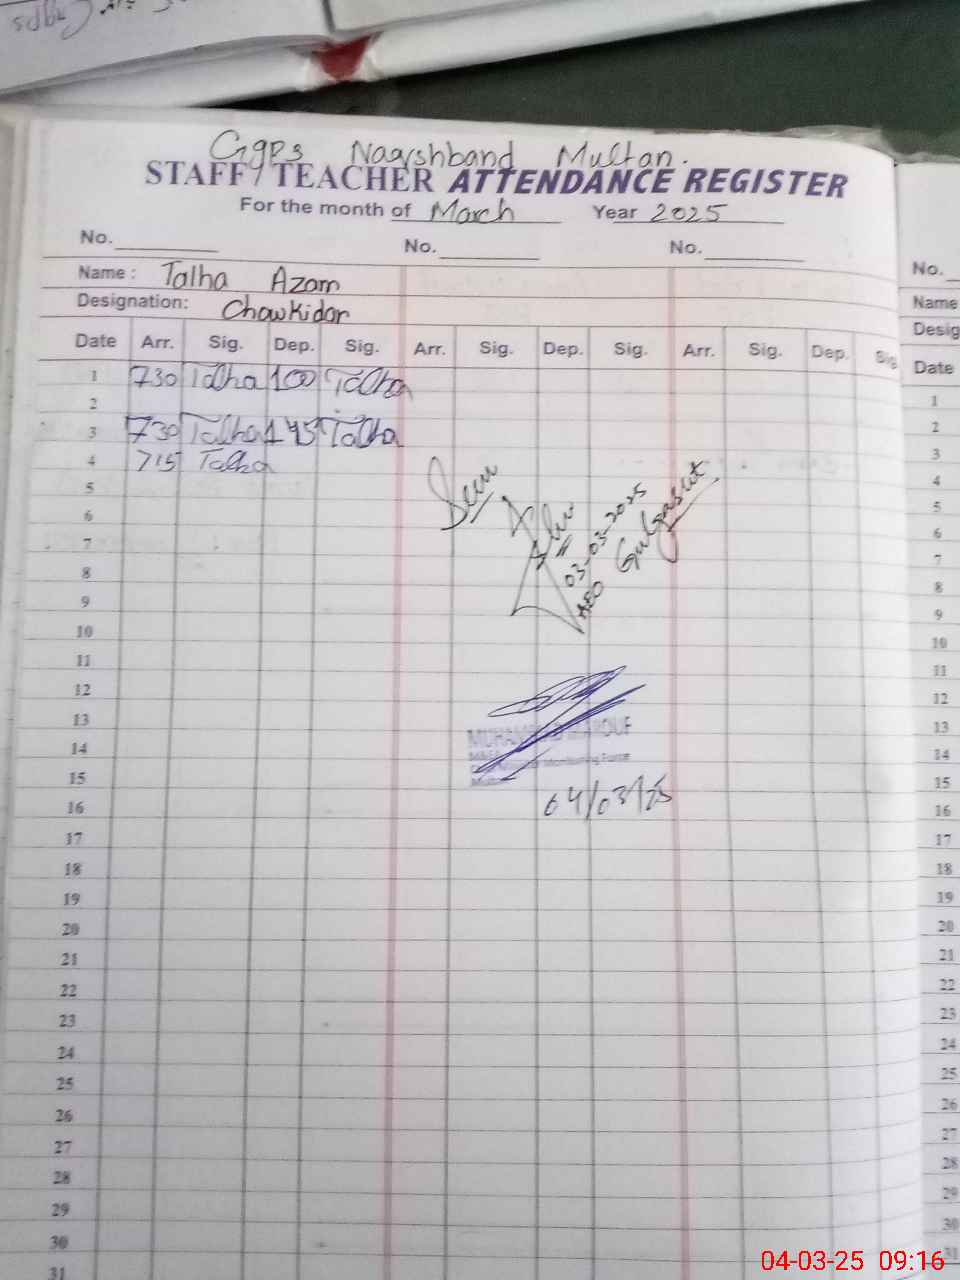 Ggps Naqshband Multan.
STAFF / TEACHER ATTENDANCE REGISTER
For the month of March Year 2025
No. No. No.
Name : Talha Azam
Designation: Chowkidar
Date Arr. Sig. Dep. Sig. Arr. Sig. Dep. Sig. Arr. Sig. Dep. Sig
1 730 Talha 100 Talha
2
3 730 Talha 145 Talha
4 715 Talha
5
6
7
8
9
10
11
12
13
14
15
16
17
18
19
20
21
22
23
24
25
26
27
28
29
30
31
Seen
03-03-2025
AEO Gulgasht
Monitoring Force
04/03/25
No.
Name
Desig
Date
1
2
3
4
5
6
7
8
9
10
11
12
13
14
15
16
17
18
19
20
21
22
23
24
25
26
27
28
29
30
31
04-03-25 09:16